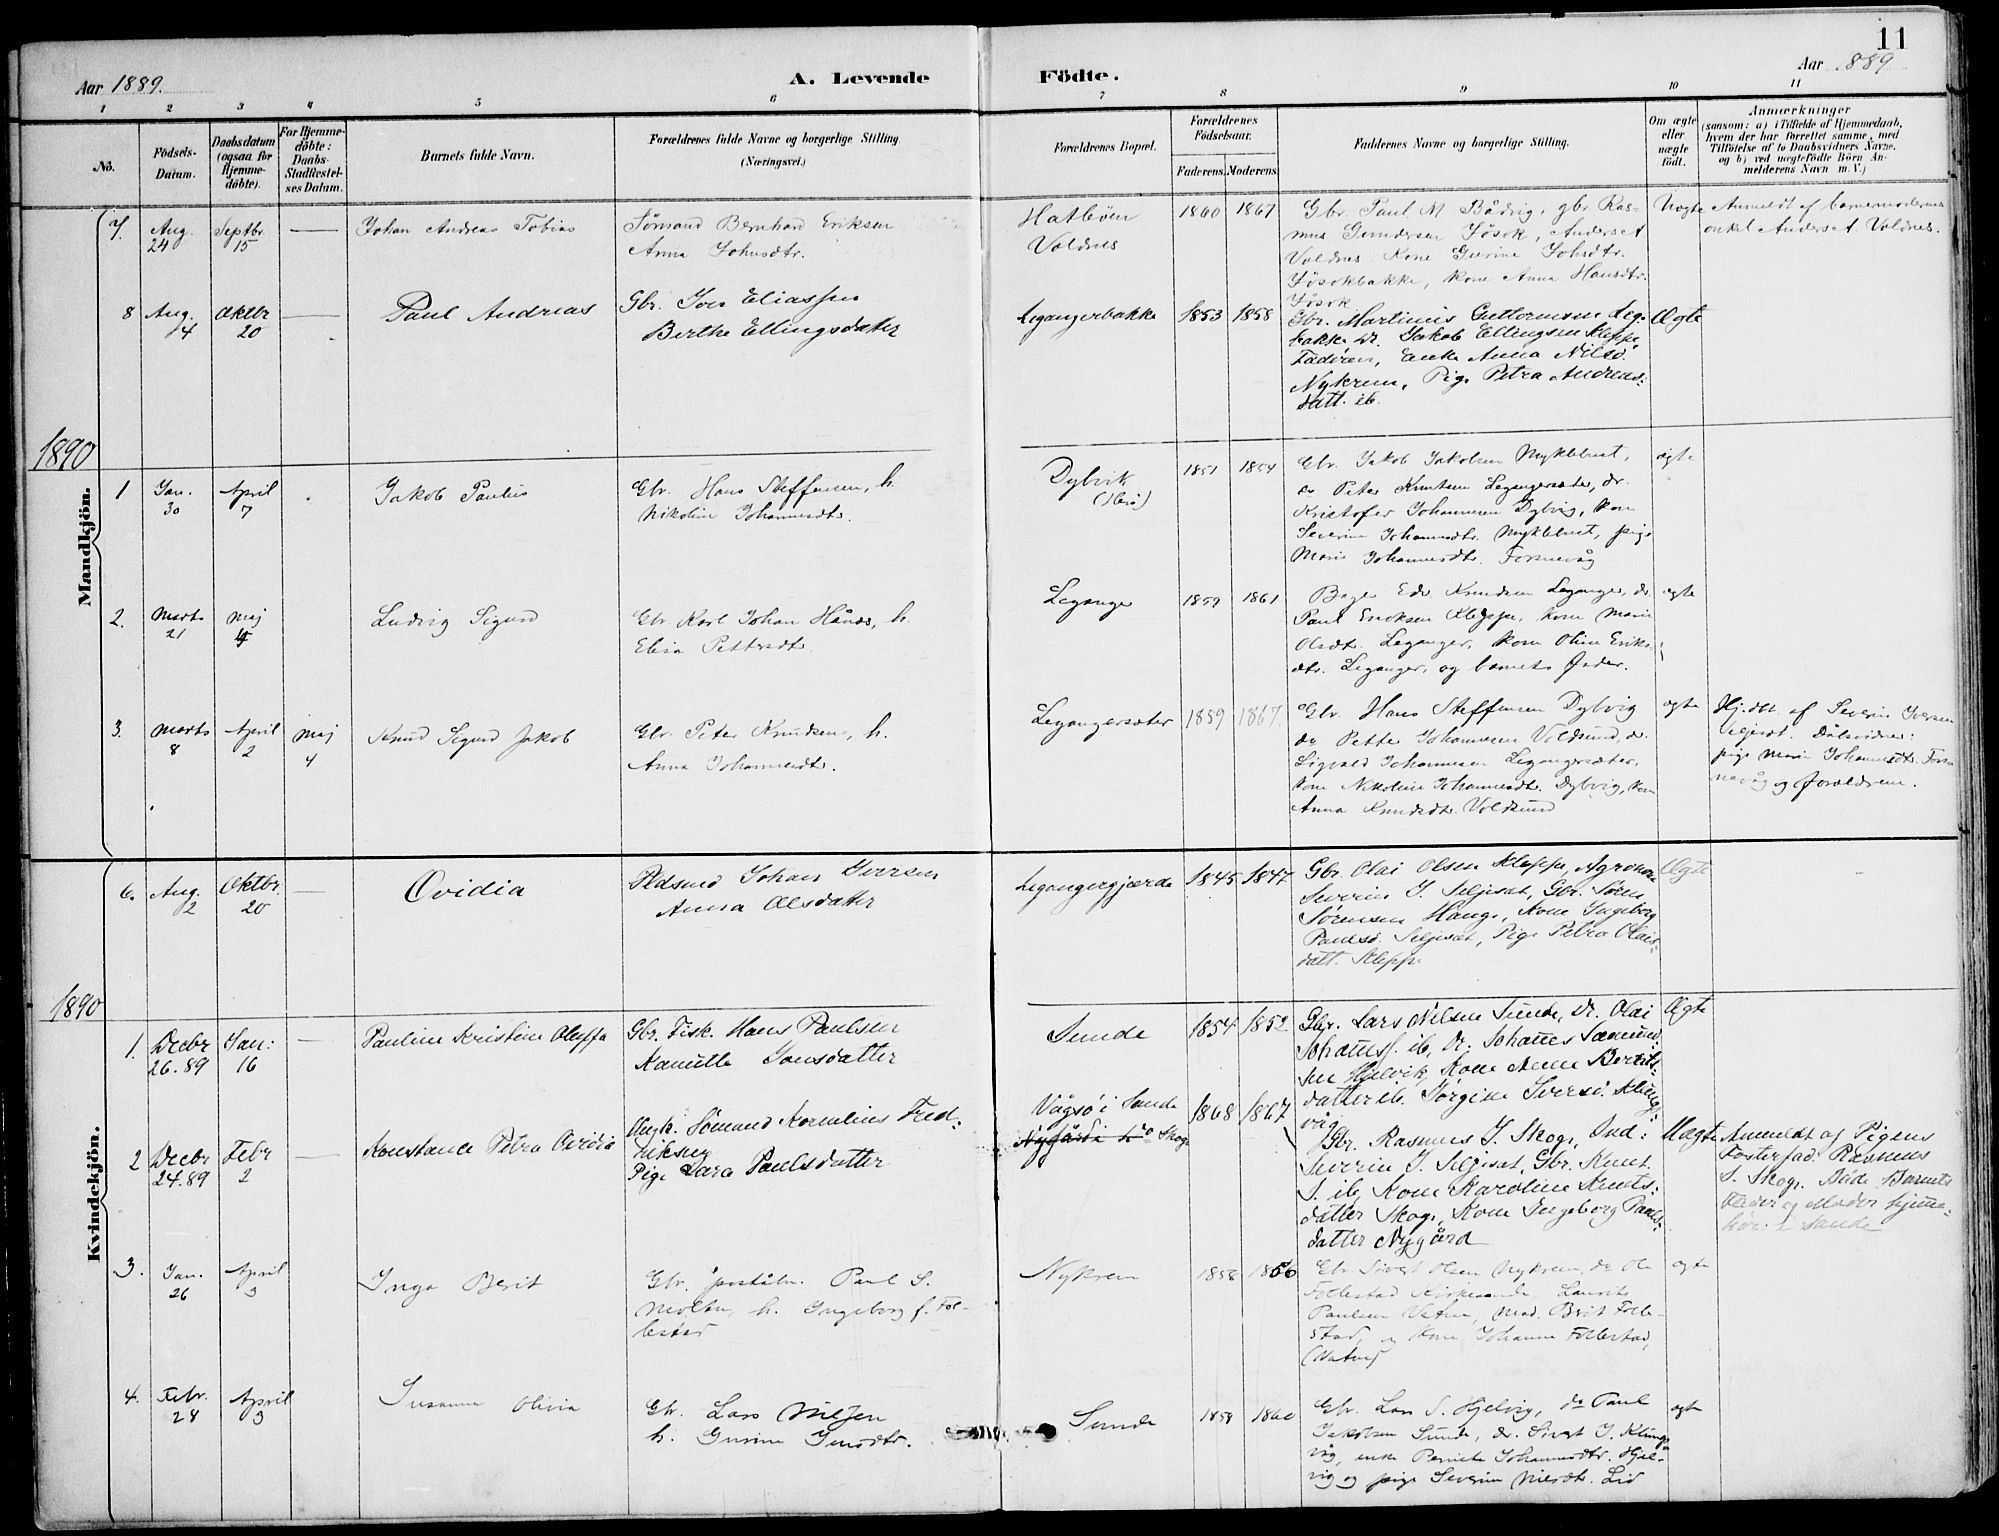 11
Aar 1889.
A. Levende
Födte.
Aar 1889
1 2 3 4 5 6 7 8 9 10 11
No.
Födsels-
Datum.
Daabsdatum
(ogsaa for
Hjemme-
döbte).
For Hjemme-
döbte:
Daabs-
Stadfæstel-
ses Datum.
Barnets fulde Navn.
Forældrenes fulde Navne og borgerlige Stilling
(Næringsvei.)
Forældrenes Bopæl.
Forældrenes
Födselsaar.
Faderens. Moderens.
Faddernes Navne og borgerlige Stilling.
Om ægte
eller
uægte
födt.
Anmærkninger
(saasom: a) i Tilfælde af Hjemmedaab,
hvem der har forrettet samme, med
Tilföielse af to Daabsvidners Navne,
og b) ved uægtefödte Börn An-
melderens Navn m. V.)
Mandkjön.
7. Aug. 24 Septbr. 15 Johan Andreas Tobias
Sömand Bernhard Eriksen
Anna Johnsdtr.
Hatløen
Voldnes
1860 1867
Gbr. Paul M Bådvig, gbr. Ras-
mus Gundersen Jøsok, Anders A
Voldnes Kone Gurine Johsdtr.
Jøsokbakke, kone Anna Hansdtr.
Jøsok
Uægte
Anmeldt af barnemoderens
onkel Anders A Voldnes.
8 Aug. 4 Oktbr 20 Paul Andreas
Gbr. Iver Eliassen
Berthe Ellingsdatter
Legangerbakke 1853 1858
Gbr. Martinus Guttormsen Leg.
bakke, Dr. Jakob Ellingsen Kleppe,
Faderen, Enke Anna Nilsd.
Nykrem, Pige Petra Andreas-
datt. ib.
Ægte
1890
1 Jan. 30 April 7 Jakob Paulus
Gbr. Hans Steffensen, h.
Nikoline Johannesdtr.
Dybvik
(Herö)
1851 1854
Gbr. Jakob Jakobsen Myklebust,
do Peter Knutsen Legangersæter, dr.
Kristofer Johannesen Dybvig, kone
Severine Johannesdtr. Myklebust, pige
Marie Johannesdtr. Fornevåg
ægte
2. Marts 21 Maj 4 Ludvig Sigurd
Gbr Karl Johan Hånes, h.
Elisa Pettersdtr.
Leganger 1859 1861
Edv Knudsen Leganger, dr.
Paul Eriksen Kleppe, kone Marie
Olsdt. Leganger, kone Oline Eriks-
dtr. Leganger, og barnets Fader.
ægte
3. Marts 8 April 2 Maj 4 Knud Sigurd Jakob
Gbr. Peter Knudsen, h.
Anna Johannesdtr.
Legangersæter 1859 1867.
Gbr. Hans Steffensen Dybvig
do Petter Johannesen Voldsund, dr.
Sigvald Johannesen Legangersæter,
kone Nikoline Johannesdtr. Dybvig, kone
Anna Knudsdtr. Voldsund
ægte
Hj.dbt. af Severin Iversen
Seljeset. Dåbsvidner:
pige Marie Johannesdtr. For-
nevåg og forældrene.
Kvindekjön.
6. Aug. 2 Oktbr. 20 Ovidia
Pladsmd Johan Iversen
Anna Olsdatter
Legangergjærde 1845 1847
Gbr. Olai Olsen Kleppe, Agronom
Severin I. Seljeset, Gbr. Søren
Sørensen Haugs, Kone Ingeborg
Paulsd. Seljeset, Pige Petra Olais-
datt. Kleppe
Ægte
1890
1. Decbr 26.89 Jan: 16 Pauline Kristine Oluffa
Gbr. Fisk. Hans Paulsen
Kamille Jonsdatter
Sunde 1854 1852
Gbr. Lars Nilsen Sunde, Dr. Olai
Johanss. ib, Dr. Johannes Sæmund-
sen Hjelvik, Kone Anne Berents-
datter ib. Jørgine Iversd. Kling-
våg
Ægte
2 Decbr 24.89 Febr 2 Konstance Petra Ovidia
Ungk. Sømand Kornelius Fred-
riksen
Pige Lara Paulsdatter
Vågsø i Sande
Nygårde h° Skoge
1868 1867
Gbr. Rasmus J. Skoge, Ind:
Severin I. Seljeset, Gbr. Knut
I. ib, Kone Karoline Knuts-
datter Skoge, Kone Ingeborg Pauls-
datter Nygård
Uægte
Anmeldt af Pigens
Fosterfad. Rasmus
J. Skoge. Både Barnets
Fader og Moder hjemme-
hør. i Sande
3. Jan. 26 April 3 Inga Berit
Gbr. poståbn. Paul S.
Moltu, h. Ingeborg f. Fol-
lestad
Nykrem 1858 1856
Gbr Sivert Olsen Nykrem, do Ole
Follestad Kirkesande, Laurits
Paulsen Vatne, mad. Brit Folle-
stad, og Kone Johanne Follestad,
(Vatne)
ægte
4. Febr. 28 April 3 Susanne Olivia
Gbr. Lars Nilsen
h. Gurine Jensdtr.
Sunde 1858 1860
Gbr. Lars S. Hjelvig, do Paul
Jakobsen Sunde, dr. Sivert I. Kling-
våg, enke Pernele Johannesdtr. Hjel-
vig og pige Severine Nilsdt. Lid
ægte